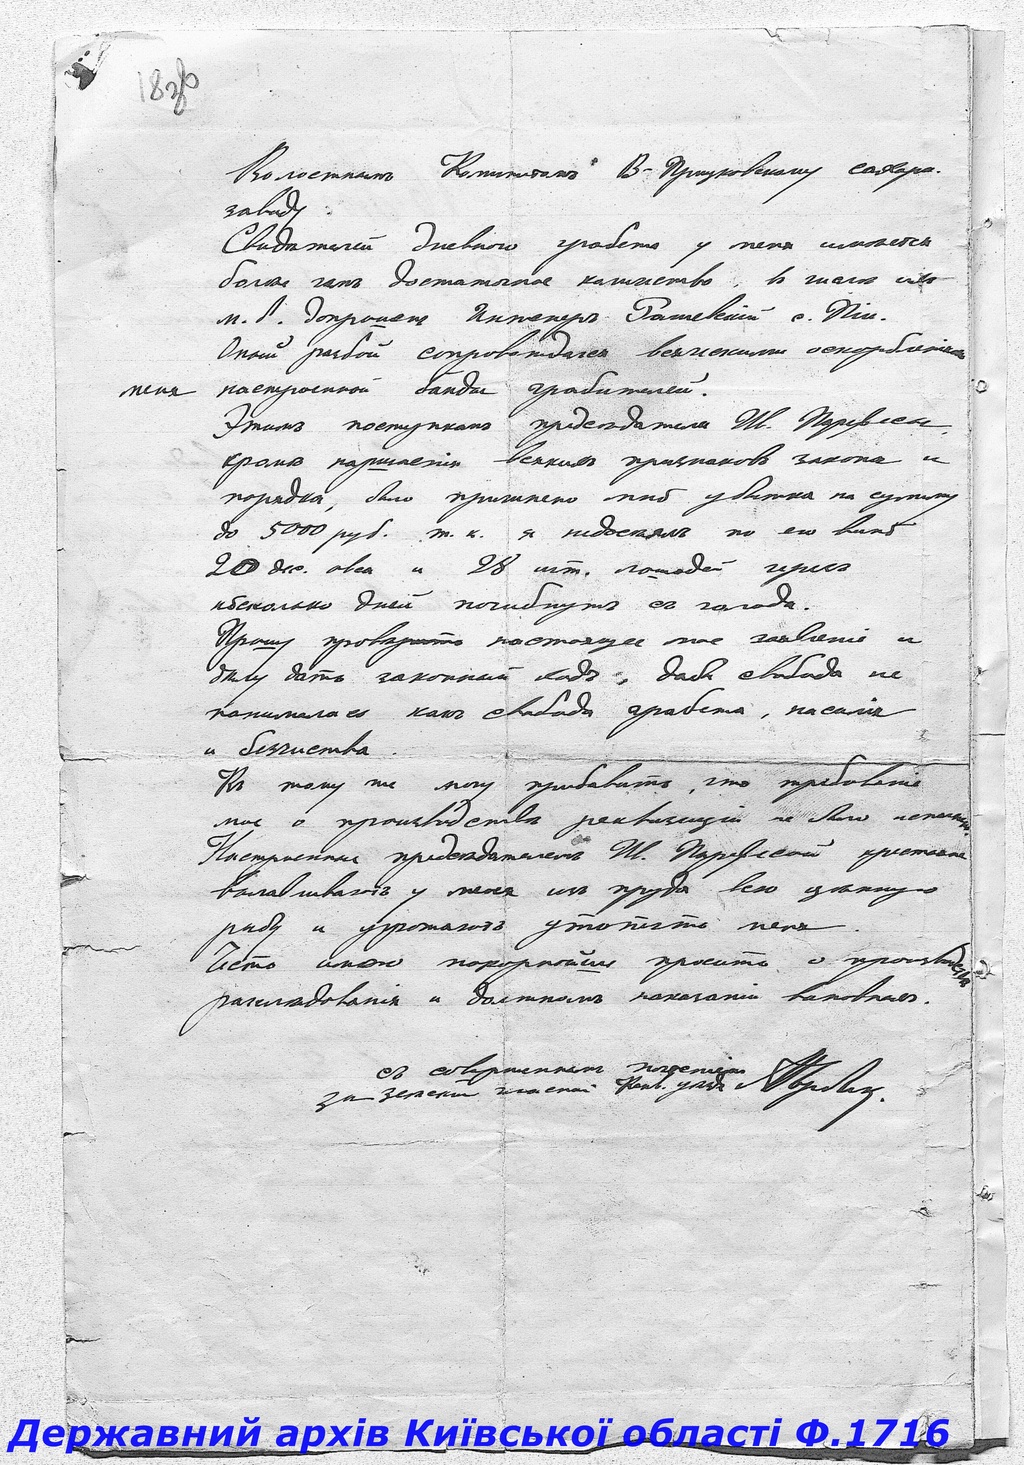 183 об
Волостнымъ Комитетомъ В-Прицковскому сахаро-
заводу.
Свидѣтелей дневного грабежа у меня имѣется
более чемъ достаточное количество, въ числѣ ихъ
м. г. Инженеръ с. Пiи.
разбой сопровождался всяческими оскорбленіями
меня настроенной банды грабителей.
Этимъ поступкамъ председателя Ш.
кромѣ нарушенія всякихъ признаковъ закона и
порядка, было причинено мнѣ убытка на сумму
до 5000 руб. т. к. я недосеялъ по его винѣ
20 дес. овса и 28 шт. лошадей черезъ
нѣсколько дней погибнутъ съ голода.
Прошу проверить настоящее мое заявленіе и
дѣлу дать законный ходъ, дабы свобода не
понималась какъ свобода грабежа, насилія
и безчиства.
Къ тому же могу прибавить, что требованіе
мое о производствѣ реквизиціи не было
Настроенные председателемъ Ш. крестьяне
вылавливаютъ у меня изъ пруда всю ценную
рыбу и угрожаютъ утопить меня.
Честь имѣю покорнѣйше просить о производствѣ
разследованія и должномъ наказаніи виновныхъ.
съ совершеннымъ почтеніемъ
земскій гласный уѣзда
Державний архів Київської області Ф.1716